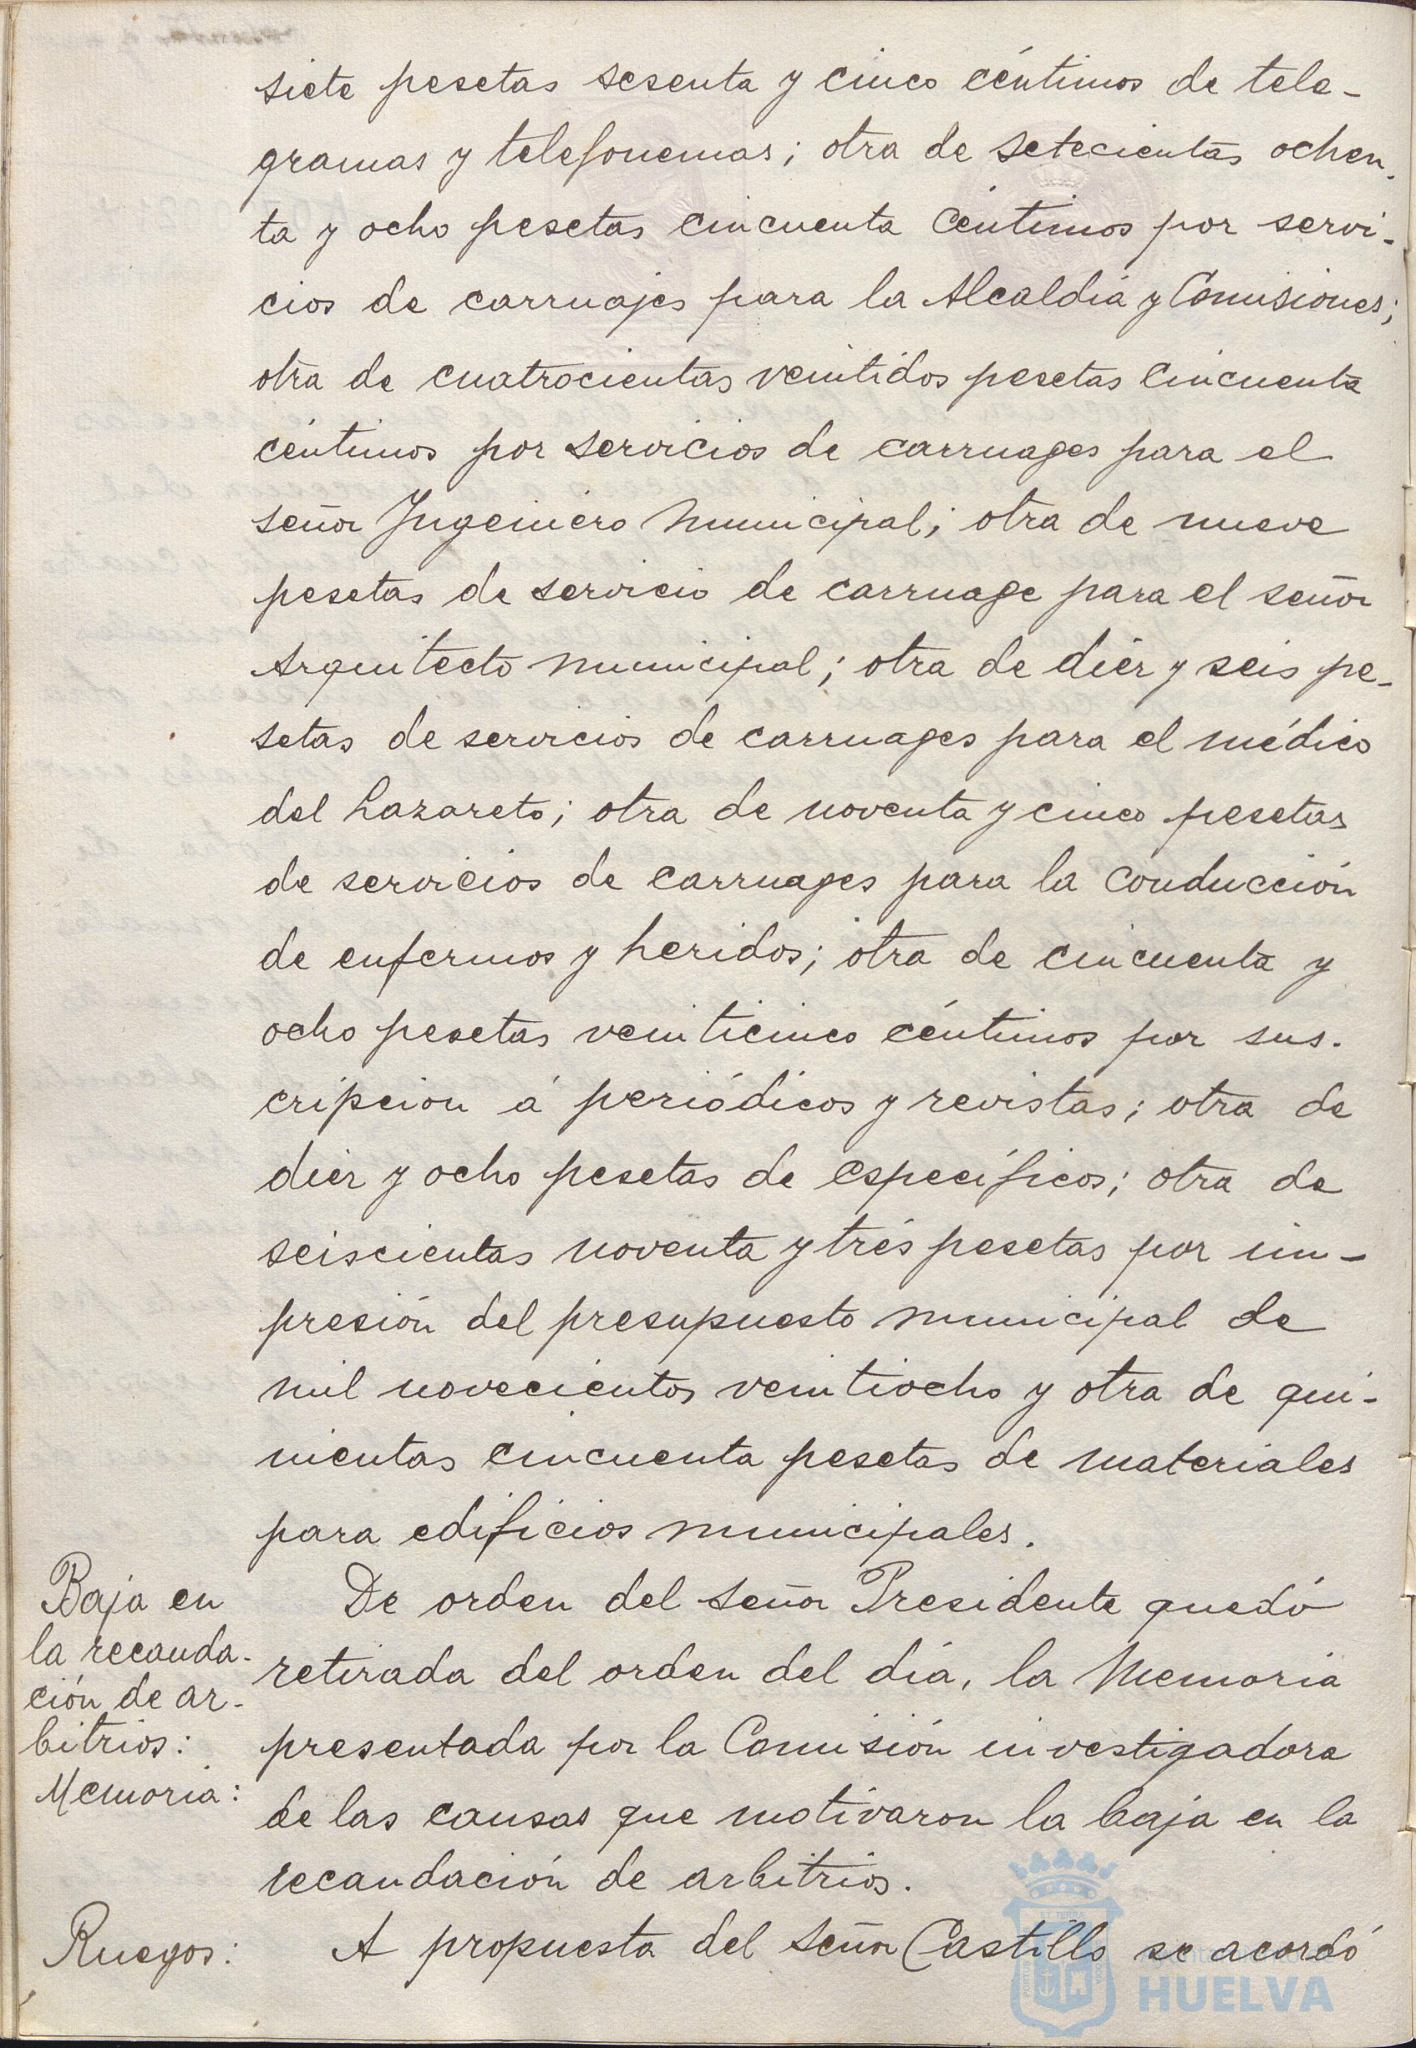 siete pesetas sesenta y cinco céntimos de tele-
gramas y telefonemas; otra de setecientas ochen-
ta y ocho pesetas cincuenta céntimos por servi-
cios de carruajes para la Alcaldía y Comisiones;
otra de cuatrocientas veintidos pesetas cincuenta
céntimos por servicios de carruages para el
señor Ingeniero municipal; otra de nueve
pesetas de servicio de carruage para el señor
Arquitecto municipal; otra de diéz y seis pe-
setas de servicios de carruages para el médico
del Lazareto; otra de noventa y cinco pesetas
de servicios de carruages para la conducción
de enfermos y heridos; otra de cincuenta y
ocho pesetas veinticinco céntimos por sus-
cripcion á periódicos y revistas; otra de
diéz y ocho pesetas de específicos; otra de
seiscientas noventa y trés pesetas por im-
presión del presupuesto municipal de
mil novecientos veintiocho y otra de qui-
nientas cincuenta pesetas de materiales
para edificios municipales.
Baja en
la recauda-
ción de ar-
bitrios:
Memoria:
De orden del señor Presidente quedó
retirada del orden del día, la Memoria
presentada por la Comisión investigadora
de las causas que motivaron la baja en la
recaudación de arbitrios.
Ruegos:
A propuesta del señor Castillo se acordó
HUELVA